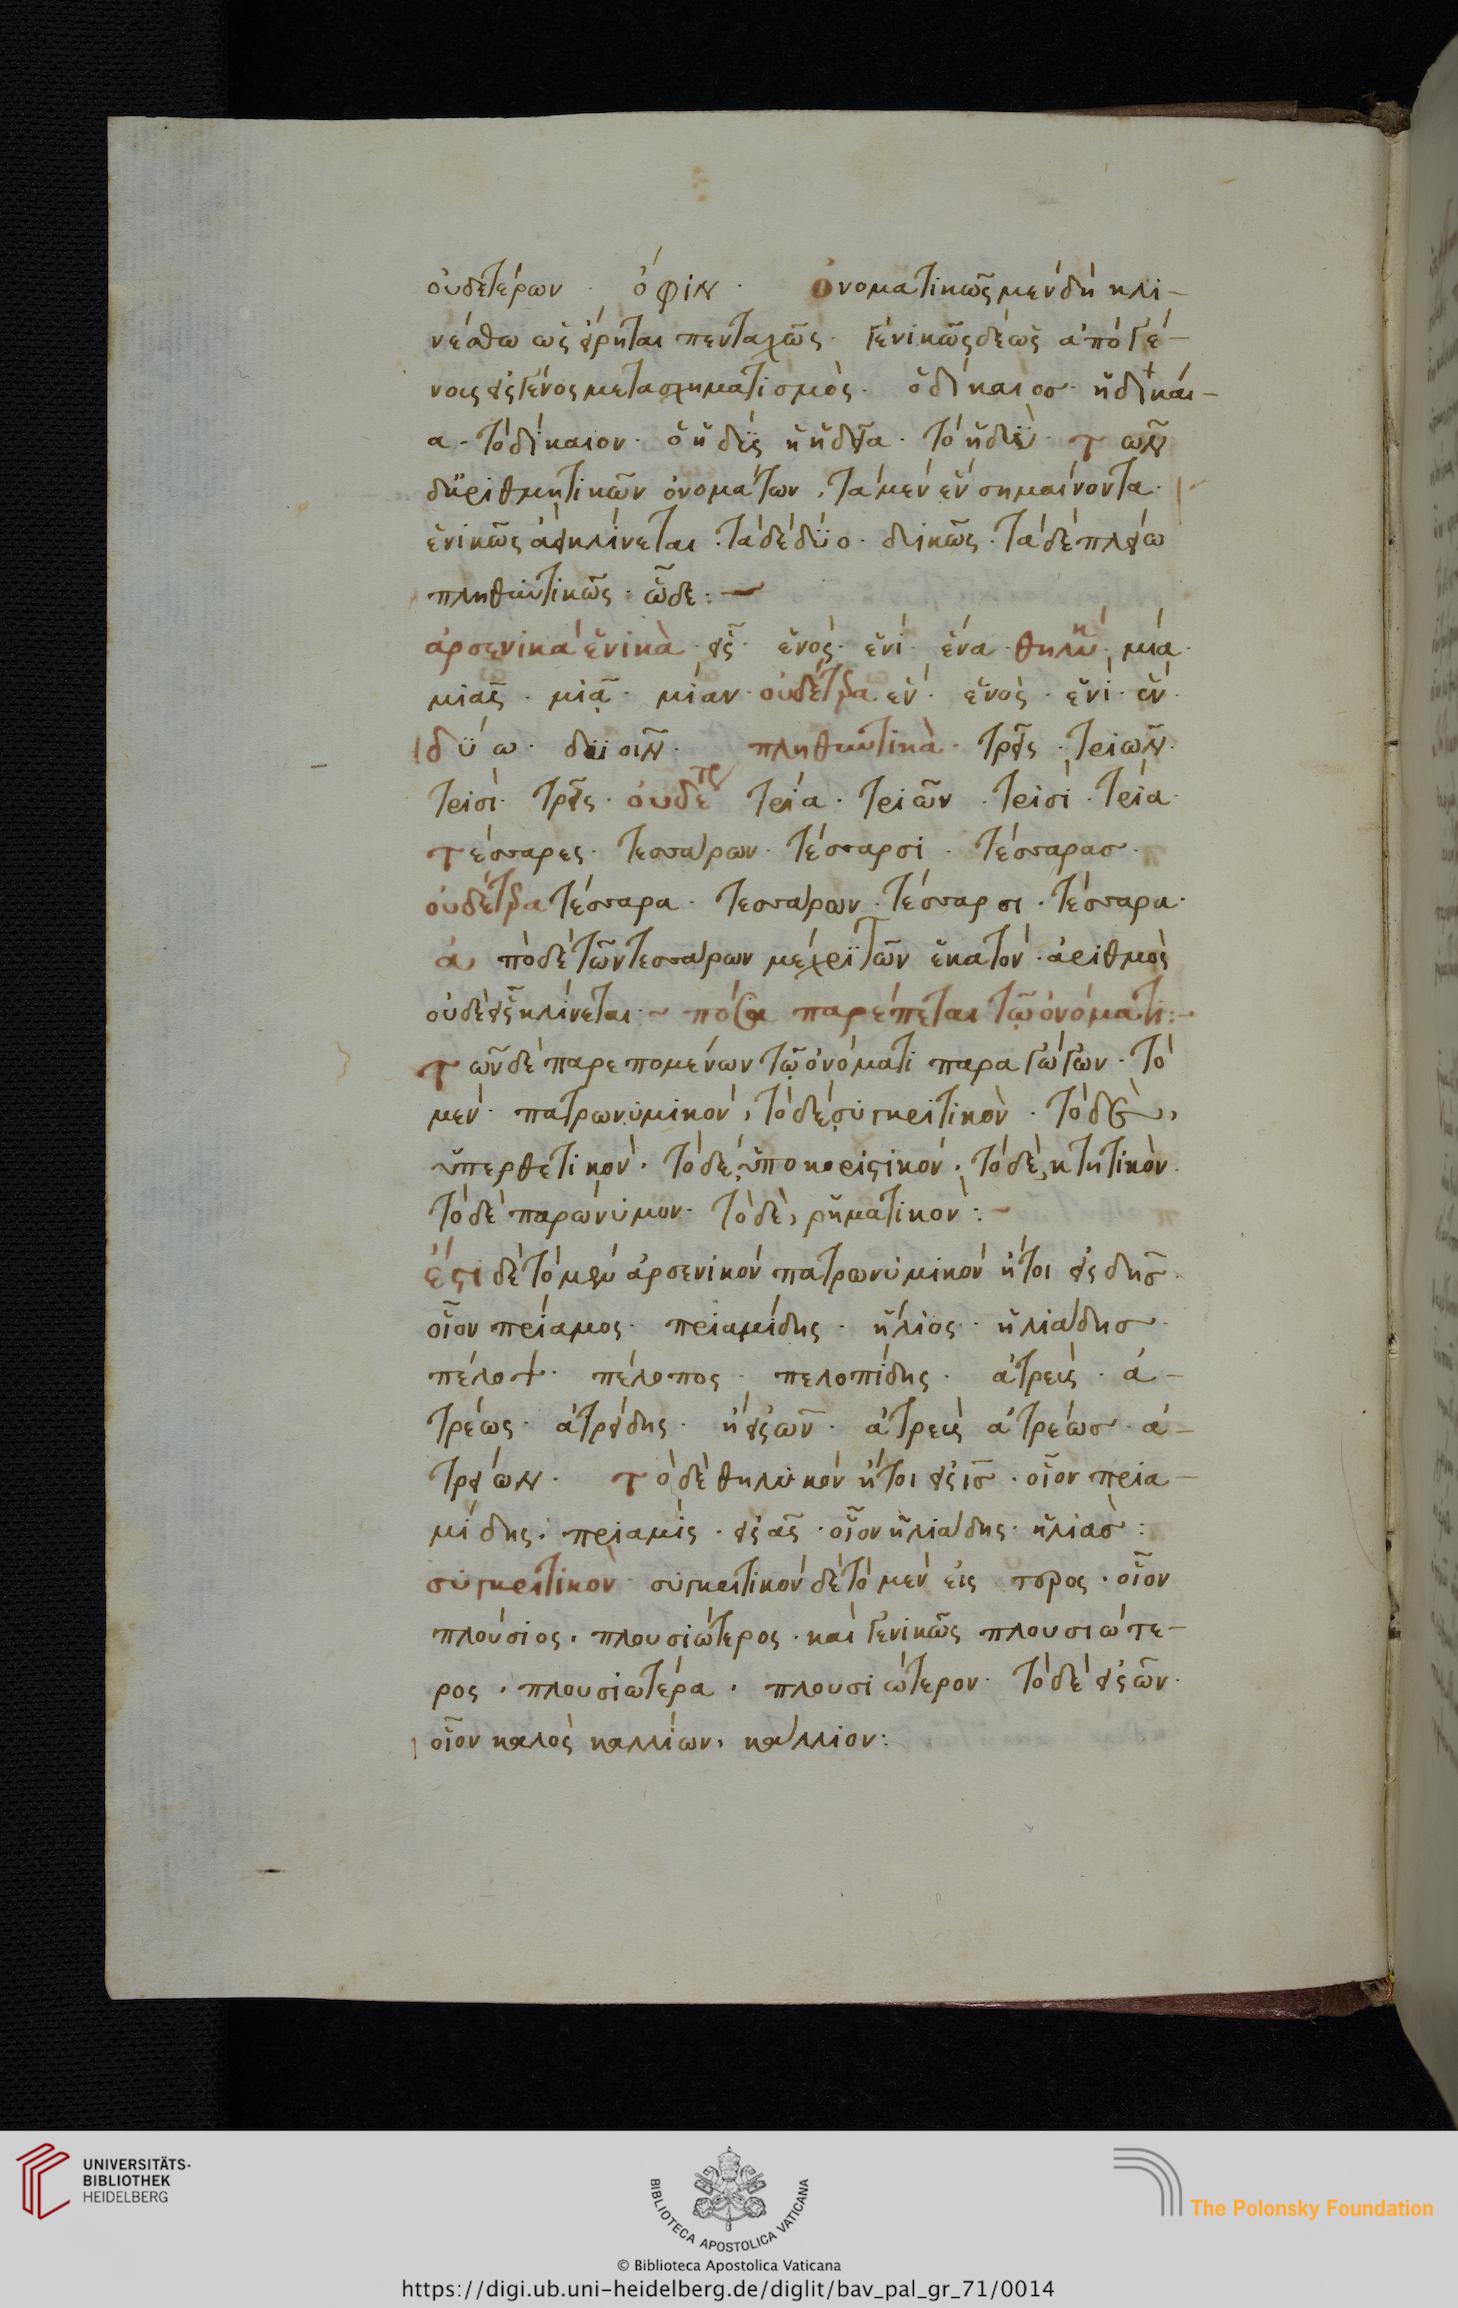 οὐδετέρων · ὄφιν · ὀνοματικῶς μὲν δὴ κλι-
νέσθω ὡς εἴρηται πενταχῶς · γενικῶς δὲ ὡς ἀπὸ γέ-
νους εἰς γένος μετασχηματισμὸς · ὁ δίκαιοσ · ἡ δικαί-
α · τὸ δίκαιον · ὁ ἡδὺς ἡ ἡδεῖα · τὸ ἡδὺ · τῶν
δ' ἀριθμητικῶν ὀνομάτων, τὰ μὲν ἓν σημαίνοντα ·
ἑνικῶς κλίνεται · τὰ δὲ δύο · δυικῶς · τὰ δὲ πλείω
πληθυντικῶς · ὧδε :–
ἀρσενικὰ ἑνικὰ · εἷς · ἑνὸς · ἑνί · ἕνα · θηλυκ · μία ·
μιᾶς · μιᾷ · μίαν · οὐδέτερα ἓν · ἑνὸς · ἑνί · ἓν ·
δύω · δυοῖν · πληθυντικὰ · τρεῖς · τριῶν ·
τρισὶ · τρεῖς · οὐδετερ τρία · τριῶν · τρισὶ · τρία ·
τέσσαρες · τεσσάρων · τέσσαρσι · τέσσαρασ ·
οὐδέτερα τέσσαρα · τεσσάρων · τέσσαρσι · τέσσαρα ·
ἀπὸ δὲ τῶν τεσσάρων μέχρι τῶν ἑκατὸν · ἀριθμὸς
οὐδεὶς κλίνεται ·~ πόσα παρέπεται τῷ ὀνόματι :–
τῶν δὲ παρεπομένων τῷ ὀνόματι παραγώγων · τὸ
μὲν · πατρωνυμικὸν, τὸ δὲ συγκριτικὸν · τὸ δὲ,
ὑπερθετικὸν · τὸ δὲ, ὑποκοριστικὸν · τὸ δὲ, κτητικὸν ·
τὸ δὲ παρώνυμον · τὸ δὲ, ῥηματικὸν :–
ἔστι δὲ τὸ μὲν ἀρσενικὸν πατρωνυμικὸν ἤτοι εἰς δησ ·
οἷον πρίαμος · πριαμίδης · ἥλιος · ἡλιάδησ ·
πέλοψ · πέλοπος · πελοπίδης · ἀτρεὺς · ἀ-
τρέως · ἀτρείδης · ἢ εἰς ων · ἀτρεὺς ἀτρέωσ · ἀ-
τρείων · τὸ δὲ θηλυκὸν ἤτοι εἰς ισ · οἷον πρια-
μίδης · πριαμίς · εἰς ας · οἷον ἡλιάδης · ἡλιὰσ :
συγκριτικὸν · συγκριτικὸν δὲ τὸ μὲν εἰς τερος · οἷον
πλούσιος · πλουσιώτερος · καὶ γενικῶς πλουσιώτε-
ρος · πλουσιωτέρα · πλουσιώτερον · τὸ δὲ εἰς ων ·
οἷον καλὸς καλλίων, κάλλιον :
UNIVERSITÄTS-
BIBLIOTHEK
HEIDELBERG
BIBLIOTECA APOSTOLICA VATICANA
The Polonsky Foundation
© Biblioteca Apostolica Vaticana
https://digi.ub.uni-heidelberg.de/diglit/bav_pal_gr_71/0014